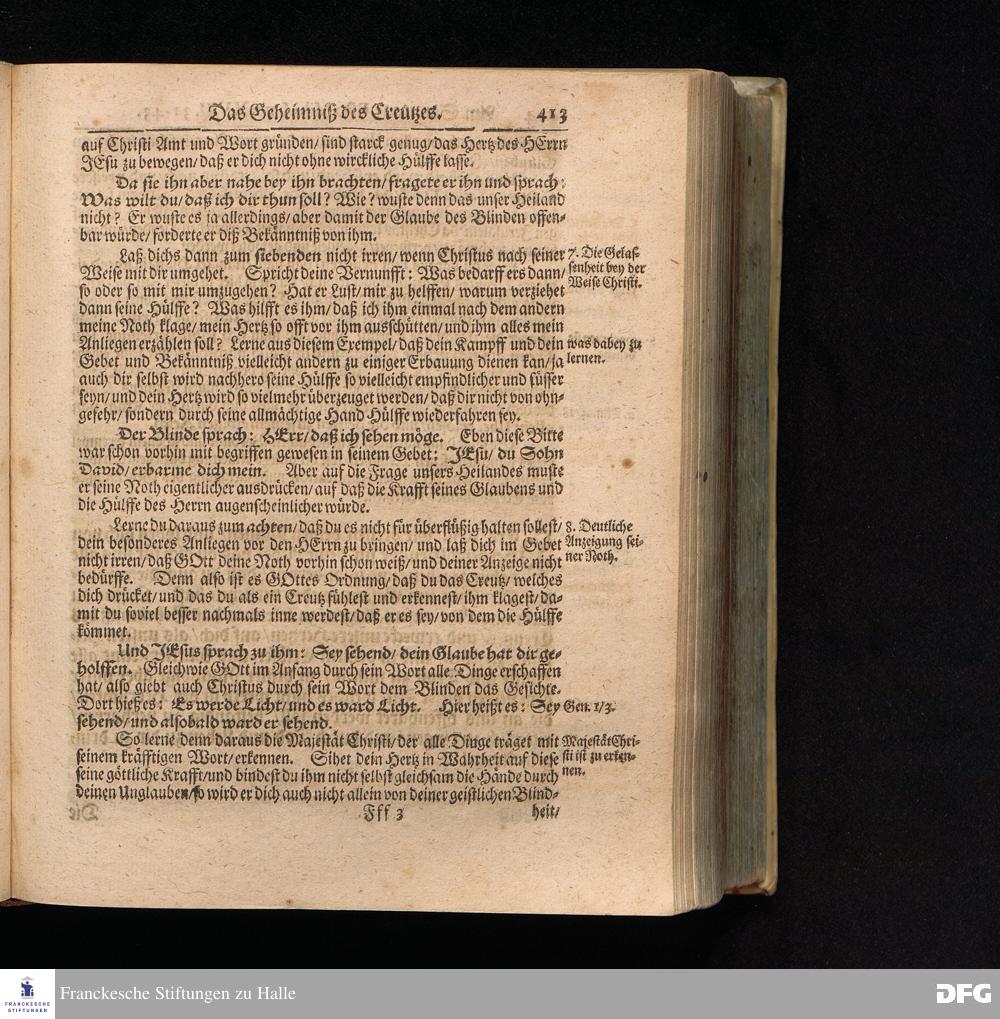 Das Geheimniß des Creutzes. 413
auf Christi Amt und Wort gründen/ sind starck genug/ das Hertz des HErrn
JEsu zu bewegen/ daß er dich nicht ohne wirckliche Hülffe lasse.
Da sie ihn aber nahe bey ihn brachten/ fragete er ihn und sprach:
Was wilt du/ daß ich dir thun soll? Wie? wuste denn das unser Heiland
nicht? Er wuste es ja allerdings/ aber damit der Glaube des Blinden offen-
bar würde/ forderte er diß Bekänntniß von ihm.
Laß dichs dann zum siebenden nicht irren/ wenn Christus nach seiner
Weise mit dir umgehet. Spricht deine Vernunfft: Was bedarff ers dann/
so oder so mit mir umzugehen? Hat er Lust/ mir zu helffen/ warum verziehet
dann seine Hülffe? Was hilfft es ihm/ daß ich ihm einmal nach dem andern
meine Noth klage/ mein Hertz so offt vor ihm ausschütten/ und ihm alles mein
Anliegen erzählen soll? Lerne aus diesem Exempel/ daß dein Kampff und dein
Gebet und Bekänntniß vielleicht andern zu einiger Erbauung dienen kan/ ja
auch dir selbst wird nachhero seine Hülffe so vielleicht empfindlicher und süsser
seyn/ und dein Hertz wird so vielmehr überzeuget werden/ daß dir nicht von ohn-
gefehr/ sondern durch seine allmächtige Hand Hülffe wiederfahren sey.
7. Die Gelas-
senheit bey der
Weise Christi.
was dabey zu
lernen.
Der Blinde sprach: HErr/ daß ich sehen möge. Eben diese Bitte
war schon vorhin mit begriffen gewesen in seinem Gebet: JEsu/ du Sohn
David/ erbarme dich mein. Aber auf die Frage unsers Heilandes muste
er seine Noth eigentlicher ausdrücken/ auf daß die Krafft seines Glaubens und
die Hülffe des Herrn augenscheinlicher würde.
Lerne du daraus zum achten/ daß du es nicht für überflüßig halten sollest/
dein besonderes Anliegen vor den HErrn zu bringen/ und laß dich im Gebet
nicht irren/ daß GOtt deine Noth vorhin schon weiß/ und deiner Anzeige nicht
bedürffe. Denn also ist es GOttes Ordnung/ daß du das Creutz/ welches
dich drücket/ und das du als ein Creutz fühlest und erkennest/ ihm klagest/ da-
mit du soviel besser nachmals inne werdest/ daß er es sey/ von dem die Hülffe
kömmet.
8. Deutliche
Anzeigung sei-
ner Noth.
Und JEsus sprach zu ihm: Sey sehend/ dein Glaube hat dir ge-
holffen. Gleichwie GOtt im Anfang durch sein Wort alle Dinge erschaffen
hat/ also giebt auch Christus durch sein Wort dem Blinden das Gesichte.
Dort hieß es: Es werde Licht/ und es ward Licht. Hier heißt es: Sey
sehend/ und alsobald ward er sehend.
Gen. 1/3.
So lerne denn daraus die Majestät Christi/ der alle Dinge träget mit
seinem kräfftigen Wort/ erkennen. Sihet dein Hertz in Wahrheit auf diese
seine göttliche Krafft/ und bindest du ihm nicht selbst gleichsam die Hände durch
deinen Unglauben/ so wird er dich auch nicht allein von deiner geistlichen Blind-
Majestät Chri-
sti ist zu erken-
nen.
Fff 3 heit/
Franckesche Stiftungen zu Halle
FRANCKESCHE
STIFTUNGEN
DFG